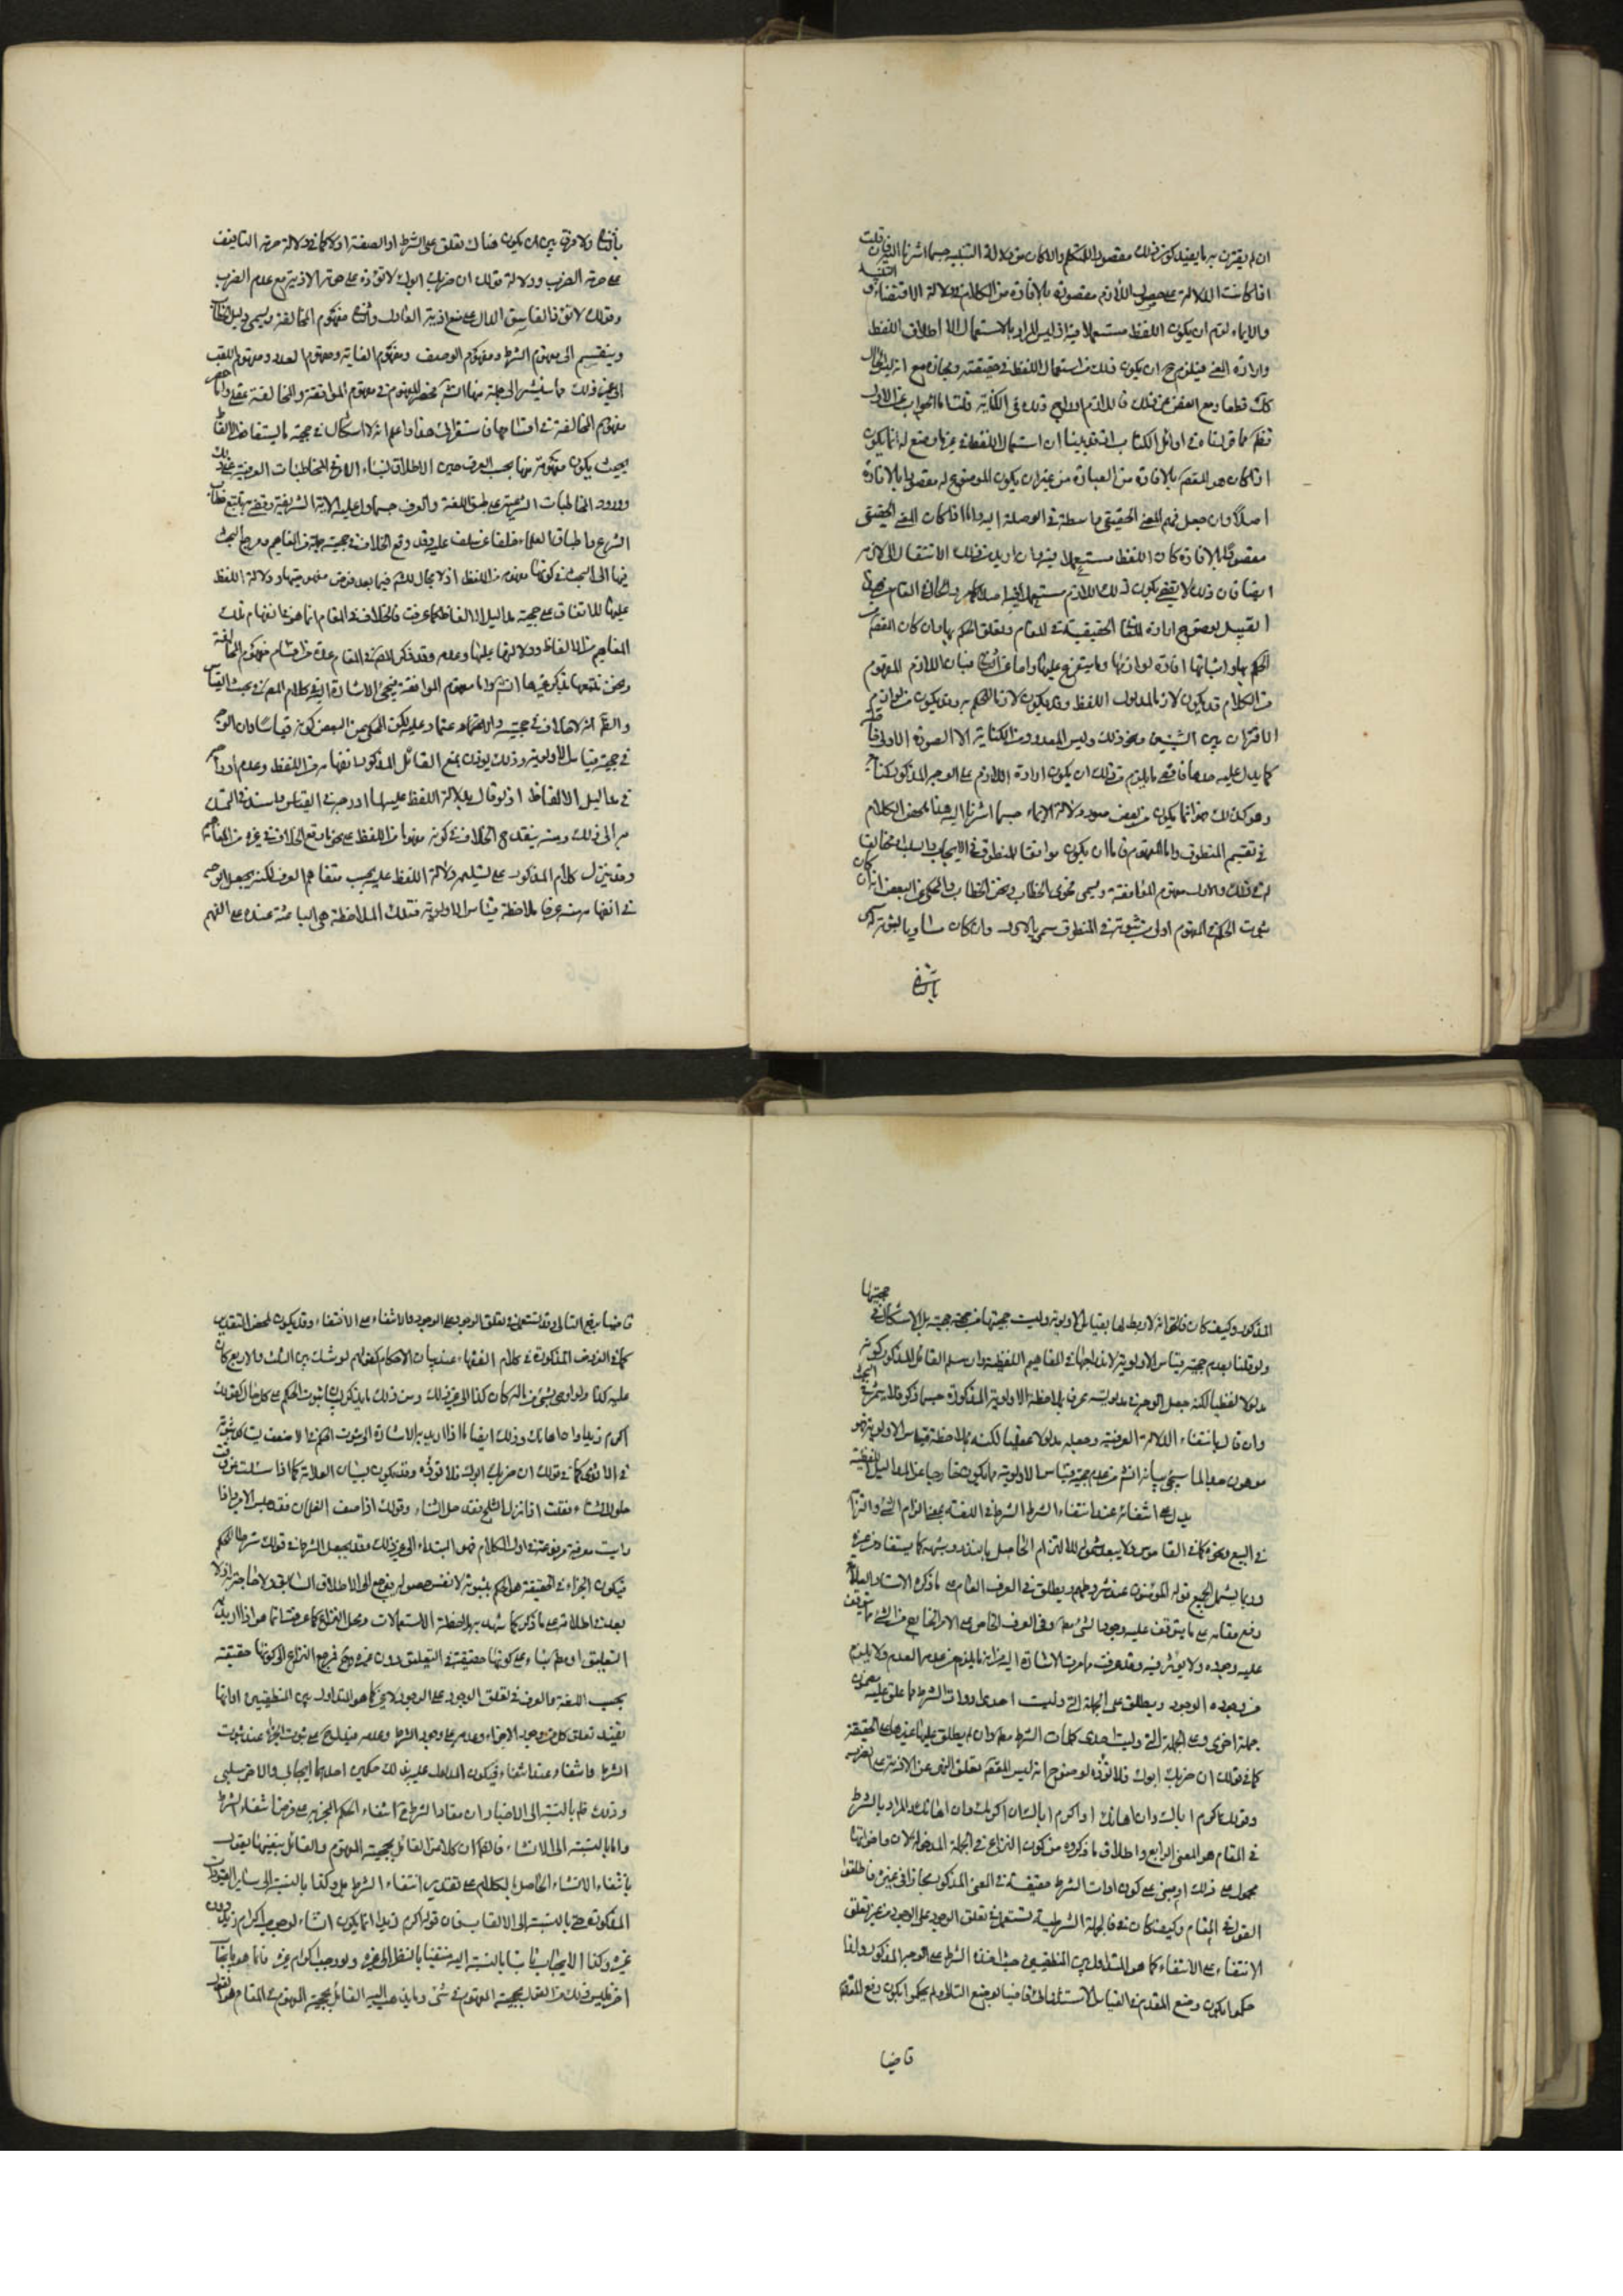 ان لم يقترن به ما يفيد كون ذلك مقصودا للمتكلم والا كان من دلالة التنبيه حسبما اشرنا اليه فان قلت
اذا كانت الدلالة على حصول اللازم مقصودة بالافادة من الكلام في دلالة الاقتضاء و التنبيه
والايماء لزم ان يكون اللفظ مستعملا فيه اذ ليس المراد بالاستعمال الا اطلاق اللفظ
وارادة المعنى فيلزم ح ان يكون ذلك من استعمال اللفظ في حقيقته ومجازه مع انه ليس الحال
كك قطعا ومع الغض عن ذلك فاللازم ادراج ذلك في الكناية قلت اما الجواب عن الاول
فظهر مما قررناه في اوائل الكتاب اذ قد بينا ان استعمال اللفظ في غير ما وضع له انما يكون
اذا كان هو المقصود بالافادة من العبارة من غير ان يكون الموضوع له مقصودا بالافادة
اصلا وان جعل فهم المعنى الحقيقي واسطة في الوصلة اليه واما اذا كان المعنى الحقيقي
مقصودا بالافادة كان اللفظ مستعملا فيه وان اريد من ذلك الانتقال الى لازمه
ايضا فان ذلك لا يقضي بكون ذلك اللازم مستعملا فيه اصلا كما هو الحال في المقام
القبيل لوضوح ارادة المعاني الحقيقية في المقام وتعلق الحكم بها وان كان المقصود من
الحكم بها واثباتها افادة لوازمها وما يتفرع عليها واما عن الثاني فبان اللازم المفهوم
من الكلام قد يكون لازما لمدلول اللفظ وقد يكون لازما للحكم به وقد يكون من لوازم
الاقتران بين الشيئين ونحو ذلك وليس المعدود من الكناية الا الصورة الاولى
كما يدل عليه حدها فاقصى ما يلزم من ذلك ان يكون ارادة اللازم على الوجه المذكور كناية
وهو كذلك هذا انما يكون في بعض صور دلالة الايماء حسبما اشرنا اليه هنا محض الكلام
في تقسيم المنطوق واما المفهوم فاما ان يكون موافقا للمنطوق في الايجاب والسلب او مخالفا
له في ذلك والاول مفهوم الموافقة ويسمى فحوى الخطاب ولحن الخطاب والمحكي عن البعض انه ان كان
ثبوت الحكم في المفهوم اولى من ثبوته في المنطوق سمي بالاول وان كان مساويا لثبوته
بالثاني
بالثاني ولا فرق بين ان يكون هناك تعلق على الشرط او الصفة او لا كما في دلالة حرمة التافيف
على حرمة الضرب ودلالة قولك ان ضربك ابوك لا تؤذه على حرمة الاذية مع عدم الضرب
وقولك لا تؤذ الفاسق الدال على منع اذية العادل والثاني مفهوم المخالفة ويسمى دليل الخطاب
وينقسم الى مفهوم الشرط ومفهوم الوصف ومفهوم الغاية ومفهوم العدد ومفهوم اللقب
الى غير ذلك مما سنشير الى جملة منها ان شم حصر المفهوم في مفهوم الموافقة والمخالفة عقلي واما حصر
مفهوم المخالفة في اقسامها فاستقرائي هذا واعلم انه لا اشكال في حجية ما يستفاد من الالفاظ
بحيث يكون مفهومة منها بحسب العرف حين الاطلاق لبناء الامر في المخاطبات العرفية على ذلك
وورود المخاطبات الشرعية على طبق اللغة والعرف حسبما دل عليه الآية الشريفة وقضى به تتبع خطاب
الشرع واطباق العلماء خلفا عن سلف عليه وقد وقع الخلاف في حجية جملة من المفاهيم ومرجع البحث
فيها الى البحث في كونها مفهوم من اللفظ اذ لا مجال للشك فيها بعد فرض مفهوميتها ودلالة اللفظ
عليها للاتفاق على حجية مداليل الالفاظ كما عرفت فالخلاف في المقام انما هو في انفهام تلك
المفاهيم من الالفاظ ودلالتها عليها وعدمه وقد ذكر المصنف في المقام عدة من اقسام مفهوم المخالفة
ونحن نتبعها بذكر غيرها انشم واما مفهوم الموافقة فيجئ الاشارة اليه في كلام المصنف في بحث القياس
والظاهر انه لا خلاف في حجيته والاعتماد عليه لكن المحكي عن البعض كونه قياسا وان الوجه
في حجيته قياس الاولوية وذلك يؤذن بمنع القائل المذكور انفهامه من اللفظ وعدم اندراجه
في مداليل الالفاظ اذ لو قال بدلالة اللفظ عليها لما ادرجه في القياس واستند في التمسك
به الى ذلك ومنه ينقدح الخلاف في كونه مفهوما من اللفظ على نحو ما وقع الخلاف في غيره من المفاهيم
وقد ينزل كلام المذكور على تسليم دلالة اللفظ عليه بحسب متفاهم العرف لكنه يجعل الوجه
في انفهامه منه عرفا ملاحظة قياس الاولوية فتلك الملاحظة هي الباعثة عنده على الفهم
المذكور وكيف كان فالحق انه لا ربط لها بقياس الاولوية وليست حجيتها من جهة حجيته بل لا اشكال في حجيتها
ولو قلنا بعدم حجية قياس الاولوية لاندراجها في المفاهيم اللفظية وان سلم القائل المذكور كونه
مدلولا لفظيا لكنه جعل الوجه في مدلوليته عرفا ملاحظة الاولوية المذكورة حسبما ذكر فلا ثمرة في البحث
وان قال بانتفاء الدلالة العرفية وجعله مدلولا عقليا لكنه بملاحظة قياس الاولوية فهو
موهون جدا لما سيجئ بيانه انشم من عدم حجية قياس الاولوية مما يكون خارجا عن المداليل اللفظية
يدل على انتفائه عند انتفاء الشرط الشرط في اللغة بمعنى الزام الشئ والتزامه
في البيع ونحوه كما في القاموس ولا يبعد شموله للالتزام الحاصل بالنذر وشبهه كما يستفاد من غيره
وربما يشمل الجميع قوله المؤمنون عند شروطهم ويطلق في العرف العام على ما ذكره الاستاد العلامة
رفع مقامه على ما يتوقف عليه وجود الشئ مطلقا وفي العرف الخاص على الامر الخارج من الشئ مما يتوقف
عليه وجوده ولا يؤثر فيه وقد عرفت مما مرت الاشارة اليه من انه ما يلزم من عدمه العدم ولا يلزم
من وجوده الوجود ويطلق على الجملة التي وليت احدى ادوات الشرط مما علق عليه مضمون
جملة اخرى وعلى الجملة التي وليت احدى كلمات الشرط مطلقا وان لم يطلق عليها غيرها على الحقيقة
كما في قولك ان ضربك ابوك فلا تؤذه لوضوح انه ليس المقصود تعلق النهي عن الاذية على الضرب
وقولك اكرم اباك وان اهانك او اكرم اباك ان اكرمك وان اهانك والمراد بالشرط
في المقام هو المعنى الرابع واطلاق ما ذكروه من كون النزاع في الجملة المدخولة لان واخواتها
محمول على ذلك او مبني على كون ادات الشرط حقيقة في المعنى المذكور مجازا في غيره فاطلقوا
القول في المقام وكيف كان فالجملة الشرطية تستعمل في تعلق الوجود على الوجود من غير تعلق
الانتفاء على الانتفاء كما هو المتداول بين المنطقيين حيث اخذوا الشرط على الوجه المذكور ولذا
حكموا بكون وضع المقدم في القياس الاستثنائي قاضيا بوضع التالي ولم يحكموا بكون رفع المقدم
قاضيا
قاضيا برفع التالي وقد تستعمل في تعلق الوجود على الوجود والانتفاء على الانتفاء وقد يكون لمحض التقدير
كما في الفروض المذكورة في كلام الفقهاء عند بيان الاحكام كقولهم لو شك بين الثلث والاربع كان
عليه كذا ولو اوصى بشئ من ماله كان كذا الى غير ذلك ومن ذلك ما يذكر لبيان ثبوت الحكم على كل حال كقولك
اكرم زيدا وان اهانك وذلك ايضا اذا اريد به الاشارة الى ثبوت الحكم في الاضعف ليثبت
في الاقوى كما في قولك ان ضربك ابوك فلا تؤذه وقد يكون لبيان العلامة كما اذا سئلت عن وقت
حلول الشتاء فقلت اذا نزل الثلج فقد حل الشتاء وقولك اذا صف الغلمان فقد جلس الامير واذا
رايت معرفة مرفوعة في اول الكلام فهو المبتداء الى غير ذلك وقد يجعل الشرط في قولك شرطا للحكم
فيكون الجزاء في الحقيقة هو الحكم بثبوته لا نفس حصوله ويرجع الى الاطلاق السابق ولا حاجة اذن لا
بعد في اطلاقه على ما ذكر كما يشهد به ملاحظة الاستعمالات ومحل النزاع كما عرفت انما هو اذا اريد
التعليق او ظهر بناء على كونها حقيقة في التعليق دون غيره ويحتمل مرجع النزاع الى كونها حقيقة
بحسب اللغة والعرف في تعلق الوجود على الوجود لا غير كما هو المتداول بين المنطقيين او انها
تفيد تعلق كل من وجود الاجزاء وعدمه على وجود الشرط وعدمه فيدل على ثبوت الجزاء عند ثبوت
الشرط وانتفاءه عند انتفاء فيكون المدلول عليه بذلك حكمين احدهما ايجابي والاخر سلبي
وذلك ظ بالنسبة الى الاخبار ان مفاد الشرط ح انتفاء الحكم المخبر به على فرض انتفاء الشرط
واما بالنسبة الى الانشاء فالظ ان كلا من القائل بحجية المفهوم والقائل بنفيها يقول
بانتفاء الانشاء الحاصل بالكلام على تقدير انتفاء الشرط بل وكذا بالنسبة الى ساير القيود
المذكورة حتى بالنسبة الى الالقاب فان قوله اكرم زيدا انما يكون انشاء لوجوب اكرام زيد دون
غيره وكذا الايجاب ثابتا بالنسبة اليه منتفيا بالنظر الى غيره ووجوب اكرام غيره فانما هو بايجاب
اخر فليس ذلك من القول بحجية المفهوم في شئ وما يذهب اليه القائل بحجية المفهوم في المقام هو القول